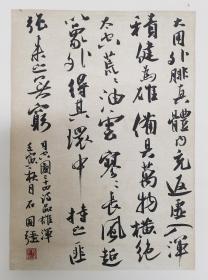 大用外腓真體内充返虚入渾
積健為雄備具萬物橫絕
太空荒荒油雲寥寥長風超
以象外得其環中持之匪
强来之無窮
司空圖詩品雄渾
壬寅秋月石国强